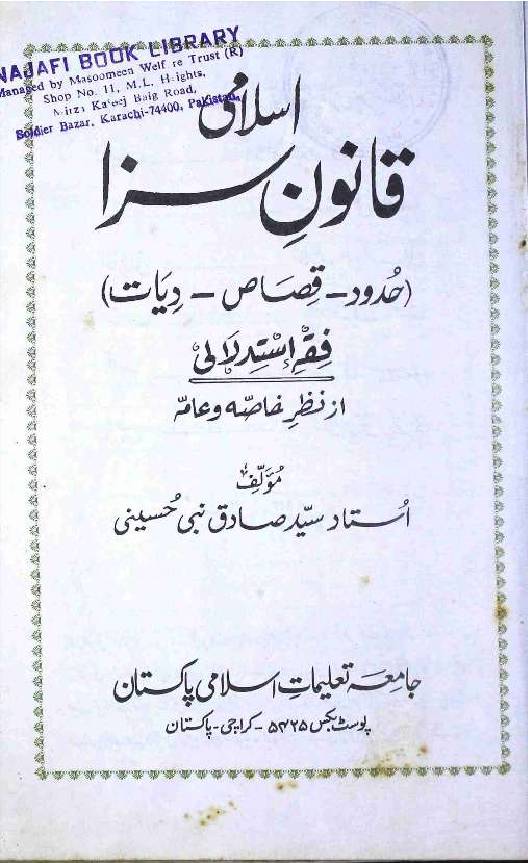 NAJAFI BOOK LIBRARY
Managed by Masoomeen Welf re Trust (R)
Shop No. 11, M.L. Heights,
Mirza Kaleej Baig Road,
Soldier Bazar, Karachi-74400, Pakistan.
اسلامی
قانونِ سزا
(حُدود - قِصاص - دِیَات)
فِقہِ اِستِدلالی
از نظرِ خاصّہ و عامّہ
مُؤلِّف
اُستاد سیّد صادق نبی حُسینی
جامعہ تعلیماتِ اسلامی پاکستان
پوسٹ بکس ۵۴۲۵ - کراچی - پاکستان